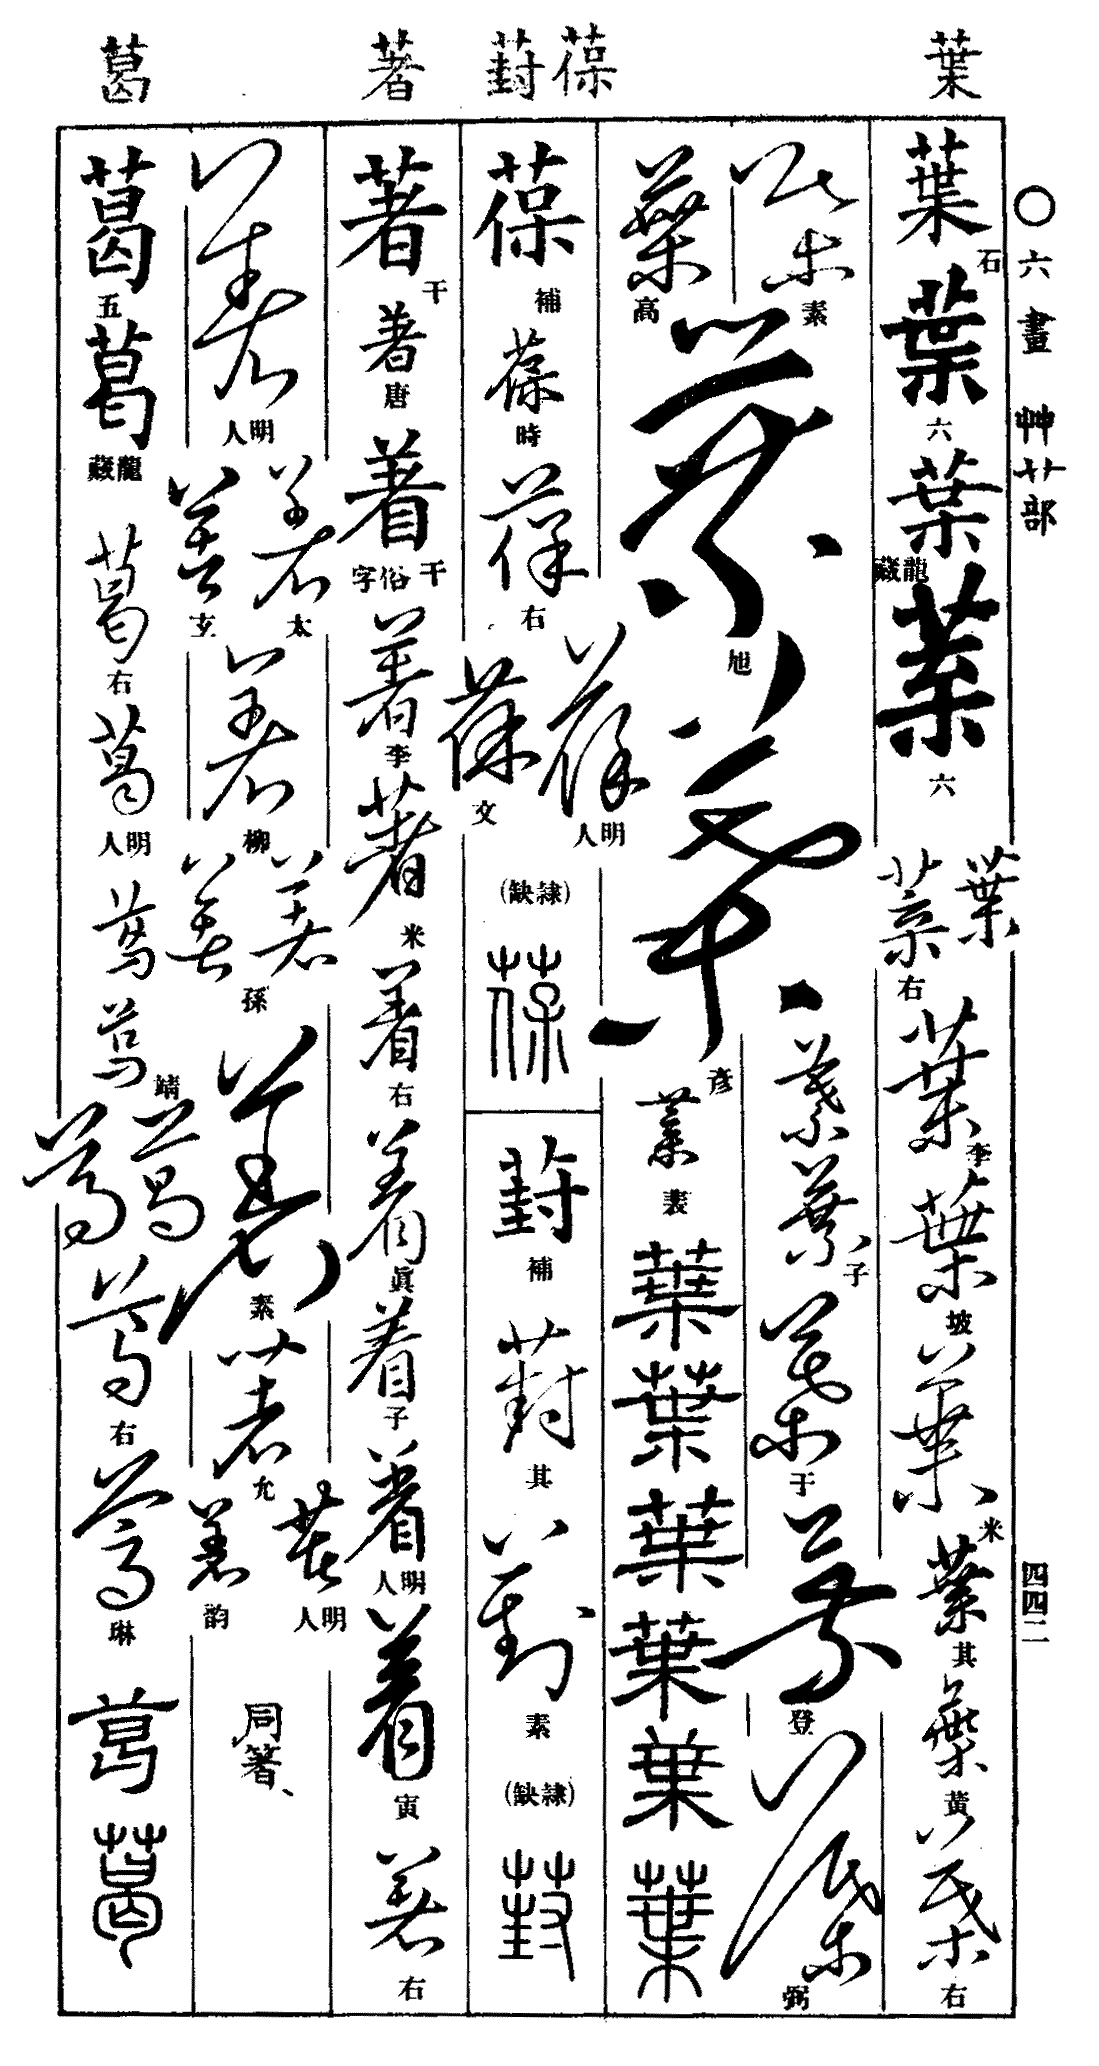 葉
葆
葑
著
葛
〇六畫 艸艹部
四四二
葉 石
葉 六
葉 龍藏
葉 六
葉 葉 右
葉 李
葉 坡
葉 米
葉 其
葉 黃
葉 右
葉 素
葉 高
葉 旭
葉 彦
葉 葉 子
葉 于
葉 登
葉 弼
葉 表
葉
葉
葉
葉
葉
葉
葆 補
葆 時
葆 右
葆 明人
葆 文
(隷缺)
葆
葑 補
葑 其
葑 素
(隷缺)
葑
著 干
著 唐
著 干 俗字
著 李
著 米
著 右
著 眞
著 子
著 明人
著 寅
著 右
著 明人
著 太
著 玄
著 柳
著 著 孫
著 素
著 允
著 明人
著 韵
同箸、
葛 五
葛 龍藏
葛 右
葛 明人
葛
葛 靖
葛 葛
葛 右
葛 琳
葛
葛